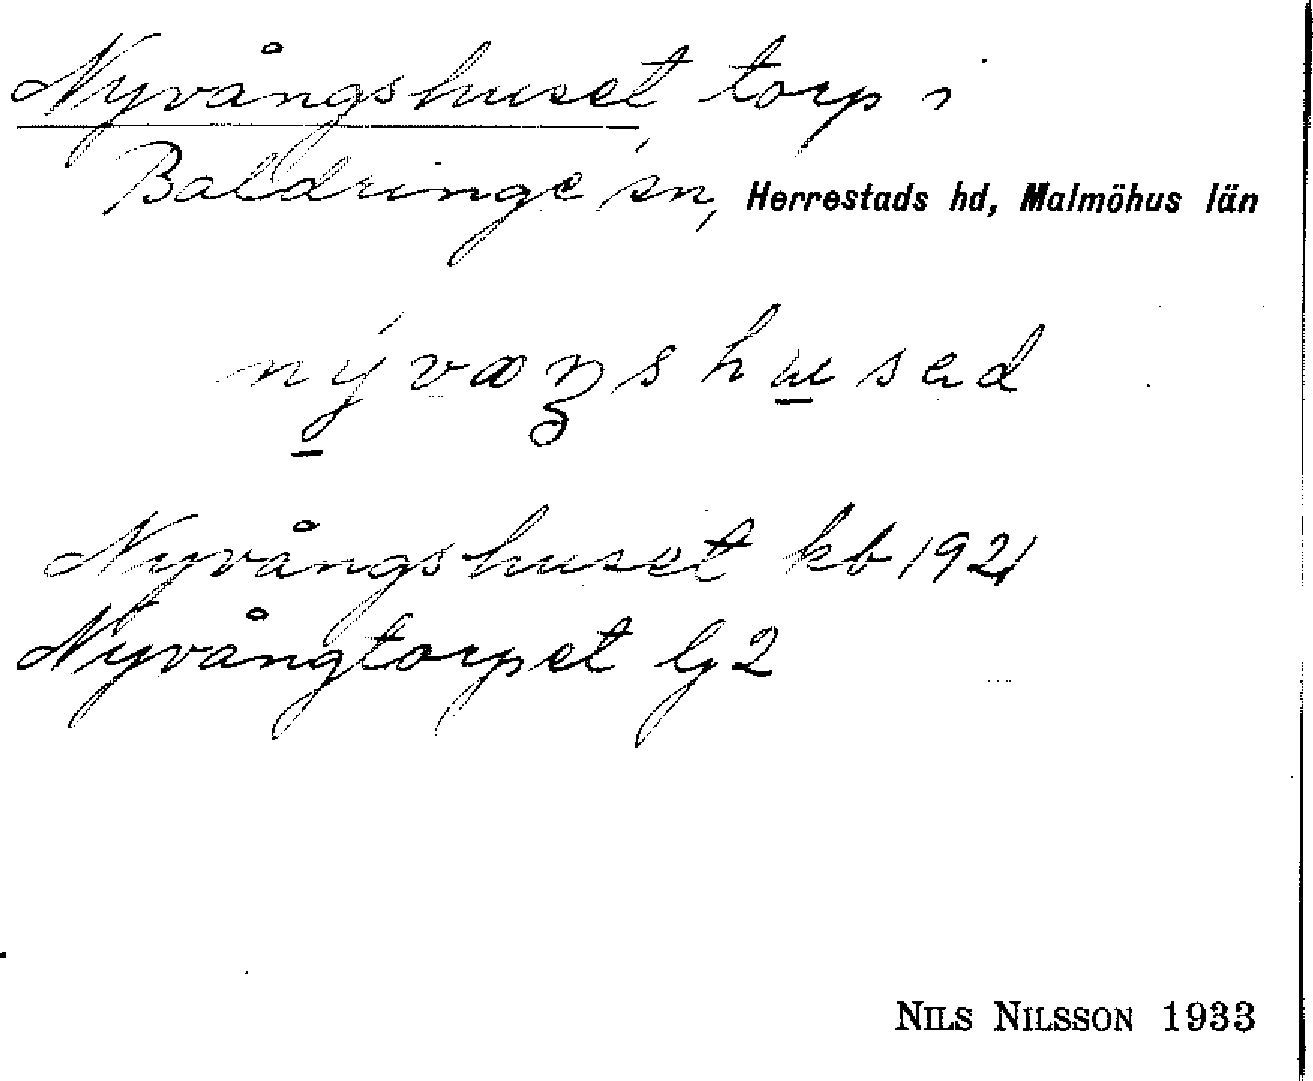 Nyvångshuset torp i
Baldringe sn, Herrestads hd, Malmöhus län
nývaŋshusad
Nyvångshuset kb 1921
Nyvångtorpet lj 2
NILS NILSSON 1933